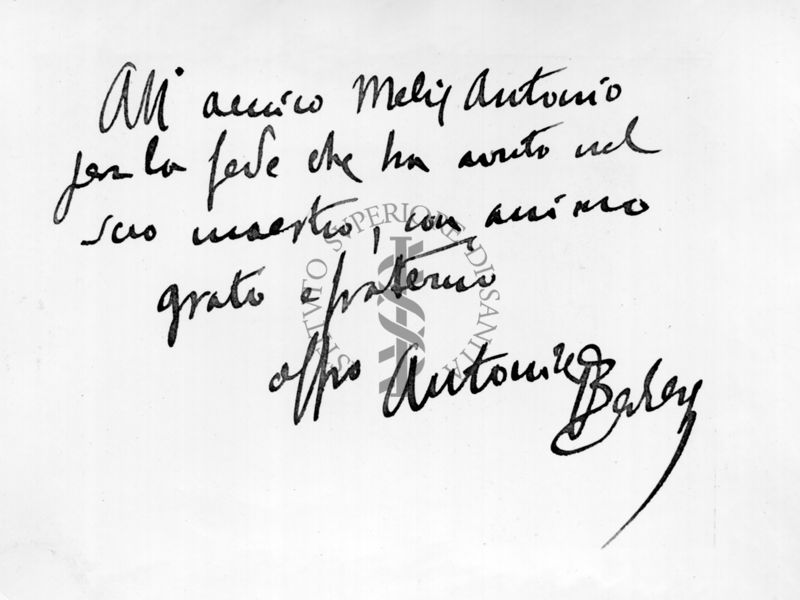 All'amico Melis Antonio
per la fede che ha avuto nel
suo maestro, con animo
grato e fraterno
offro
ISTITUTO SUPERIORE DI SANITÀ